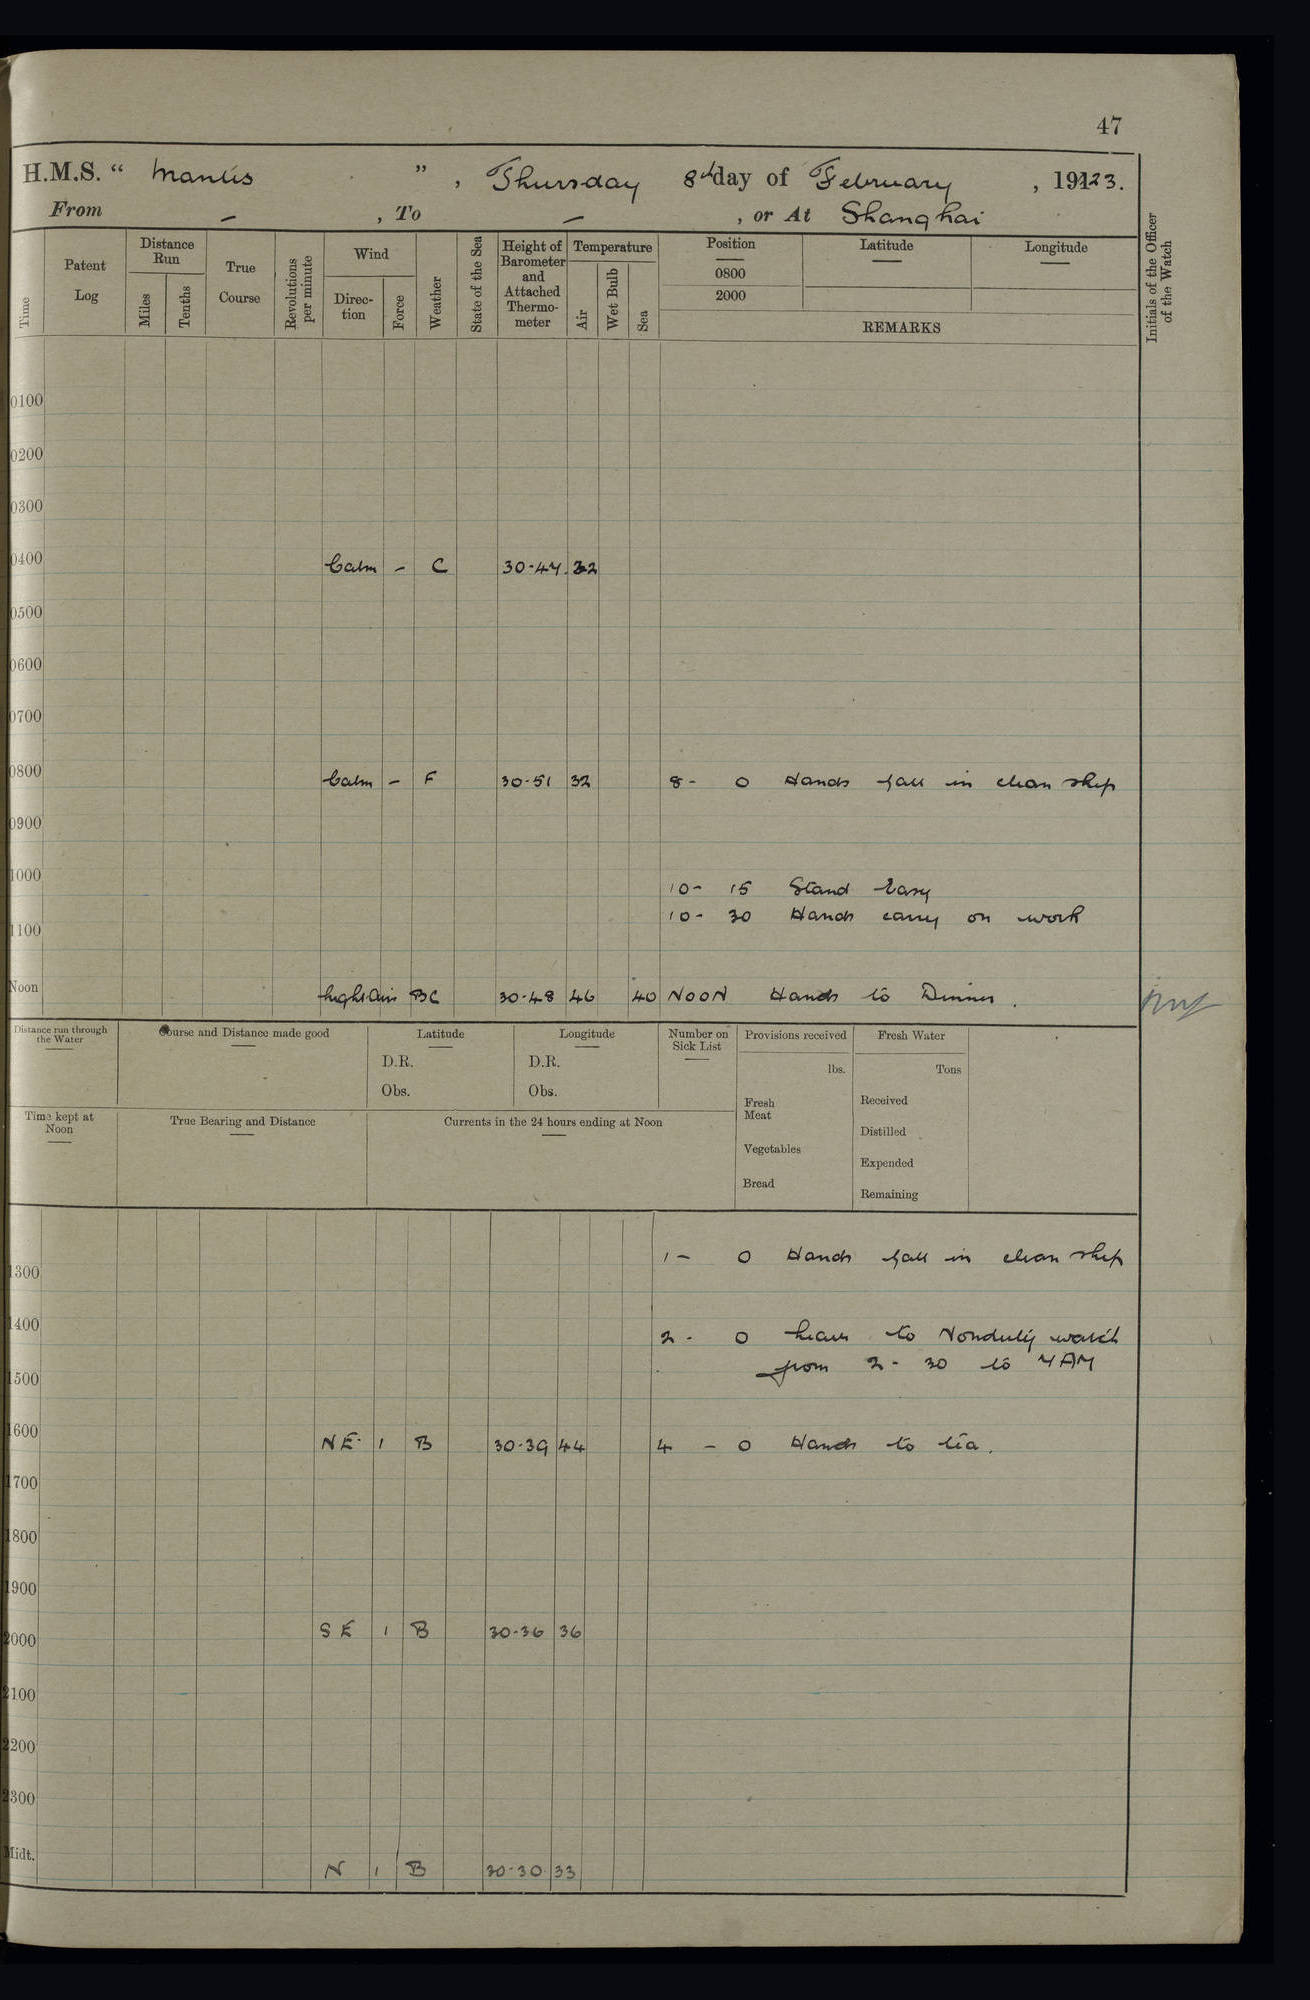 47
H.M.S. “ Mantis ” , Thursday 8th day of February , 1923.
From – , To – , or At Shanghai
Time Patent Log Distance Run Miles Tenths True Course Revolutions per minute Wind Direc-tion Force Weather State of the Sea Height of Barometer and Attached Thermo-meter Temperature Air Wet Bulb Sea Position 0800 2000 Latitude Longitude REMARKS Initials of the Officer of the Watch
0100
0200
0300
0400 Calm – C 30-47 32
0500
0600
0700
0800 Calm – F 30-51 32 8- 0 Hands fall in clean ship
0900
1000 10- 15 Stand Easy
10- 30 Hands carry on work
1100
Noon Light Airs BC 30-48 46 40 NOON Hands to Dinner .
Distance run through the Water Course and Distance made good Latitude D.R. Obs. Longitude D.R. Obs. Number on Sick List Provisions received lbs. Fresh Water Tons
Fresh Meat Received
Time kept at Noon True Bearing and Distance Currents in the 24 hours ending at Noon
Distilled
Vegetables
Expended
Bread
Remaining
1- 0 Hands fall in clean ship
1300
1400 2- 0 Leave to Nonduty watch
from 2-30 to 7AM
1500
1600 NE 1 B 30-39 44 4 - 0 Hands to tea.
1700
1800
1900
2000 SE 1 B 30-36 36
2100
2200
2300
Midt. N 1 B 30-30 33